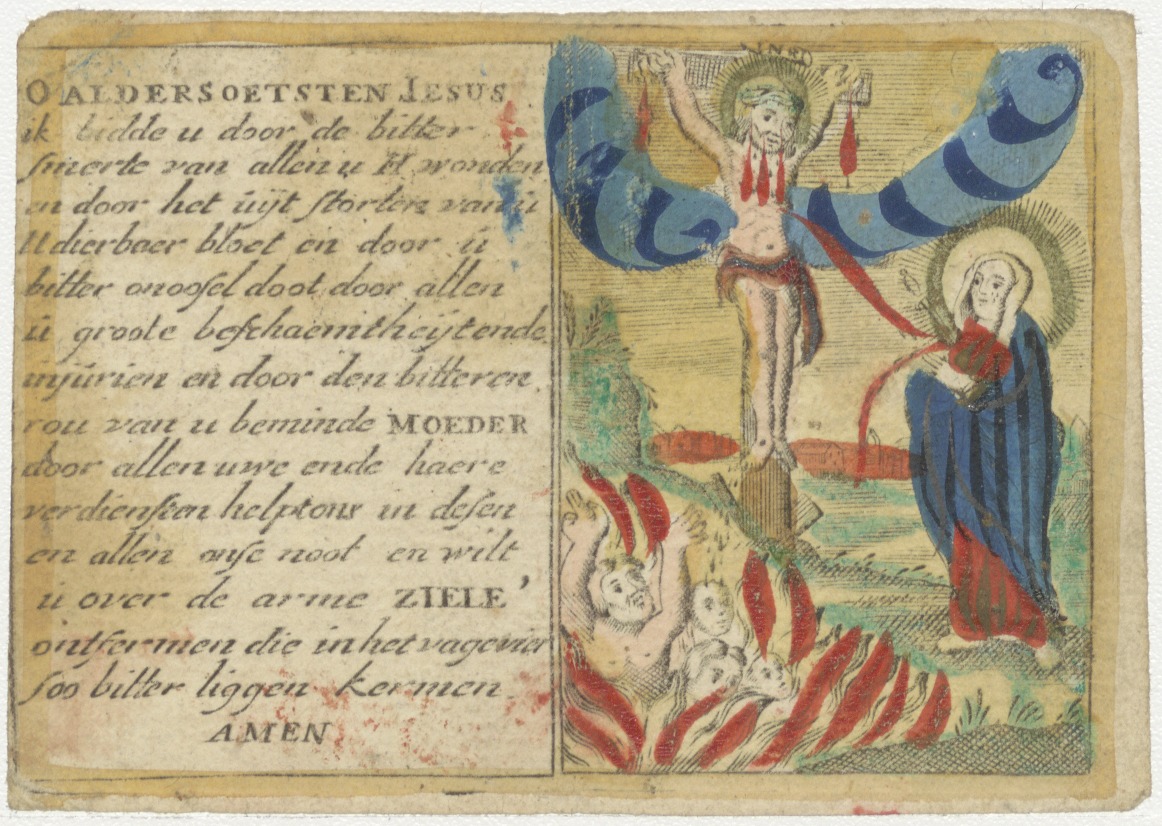 O ALDERSOETSTEN JESUS
ik bidde u door de bitter
smerte van allen u H wonden
en door het uÿt storten van u
H dierbaer bloet en door ú
bitter onoosel doot door allen
ú groote beschaemtheÿt ende
injúrien en door den bitteren
rou van u beminde MOEDER
door allen uwe ende haere
verdiensten helpt ons in desen
en allen onse noot en wilt
ú over de arme ZIELE'
ontfermen die in het vagevier
soo bitter liggen kermen
AMEN
INRI